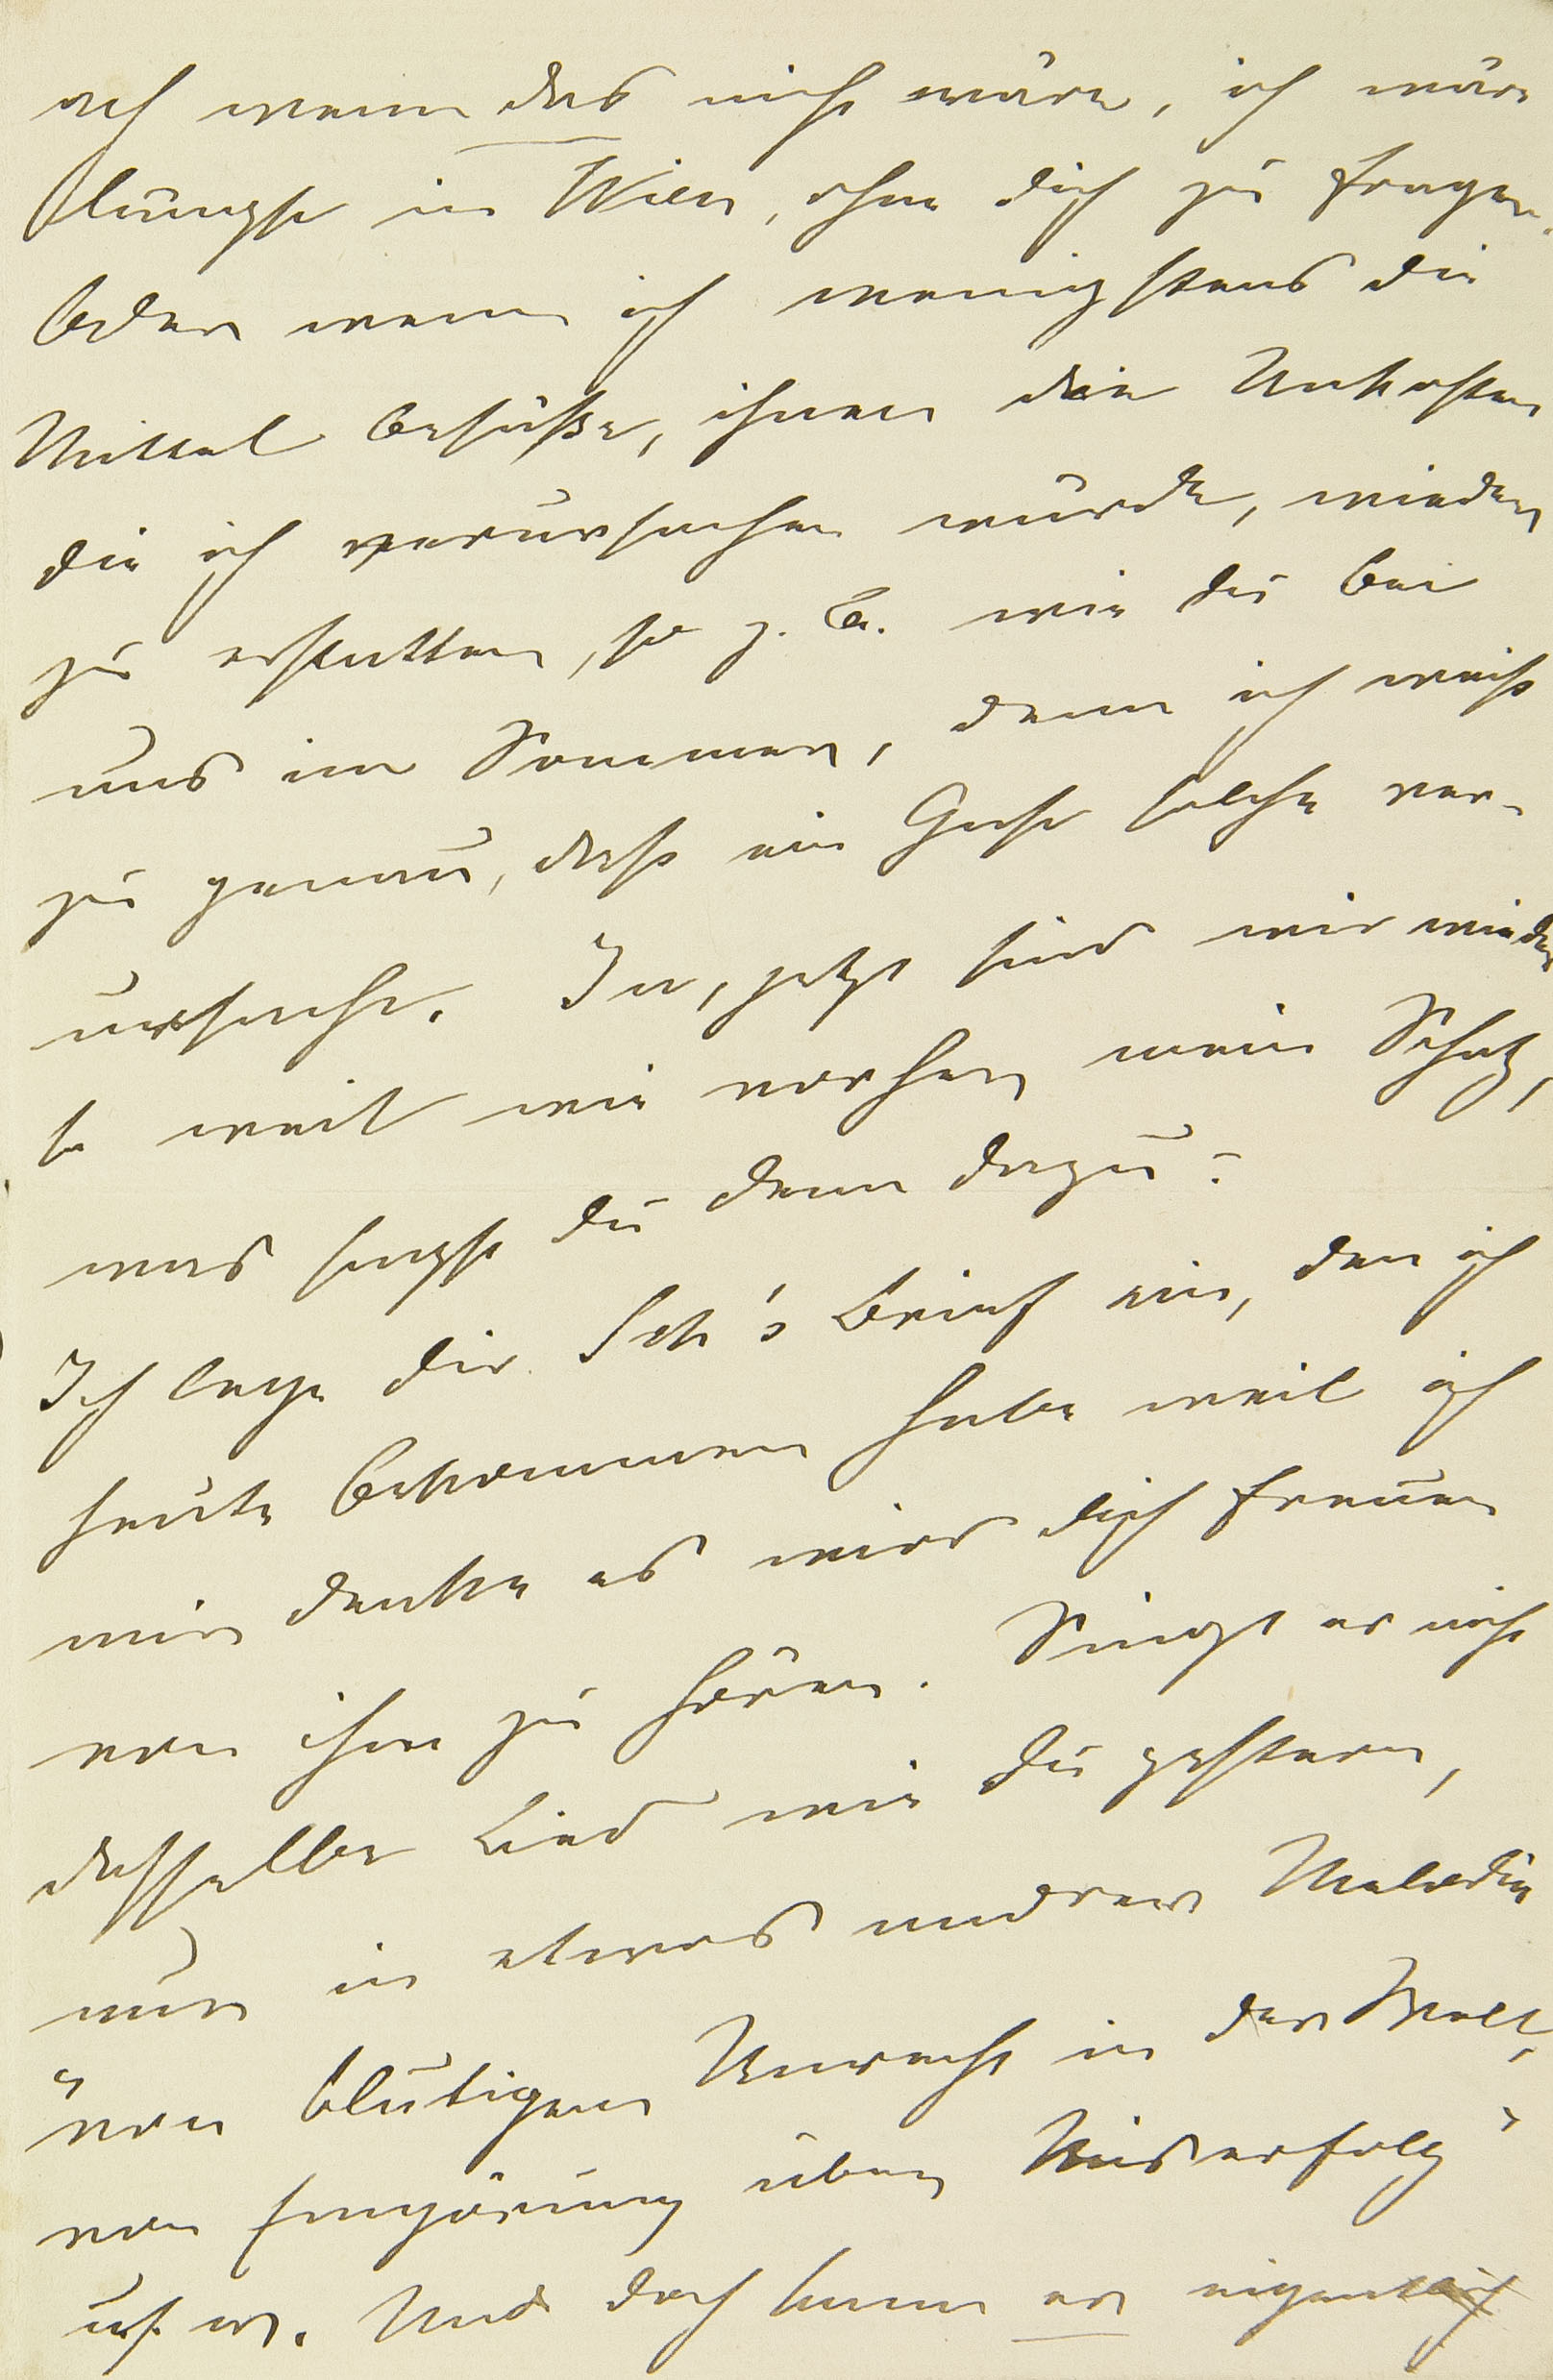 ach wenn das nicht wäre, ich wäre
längst in Wien, ohne dich zu fragen.
Oder wenn ich wenigstens die
Mittel besäße, ihnen die Unkosten
die ich verursachen würde, wieder
zu erstatten, so z. B. wie du bei
uns im Sommer, denn ich weiß
zu genau, daß ein Gast solche ver-
ursacht. Ja, jetzt sind wir wieder
so weit wie vorher, mein Schatz,
was sagst du denn dazu?
Ich lege dir Sch's Brief ein, den ich
heute bekommen habe weil ich
mir denke es wird dich freuen
von ihm zu hören. Singt er nicht
dasselbe Lied wie du gestern,
nur in etwas andrer Melodie
"von blutigem Unrecht in der Welt,
von Empörung über Mißerfolg"
u.s.w. Und doch kann er eigentlich